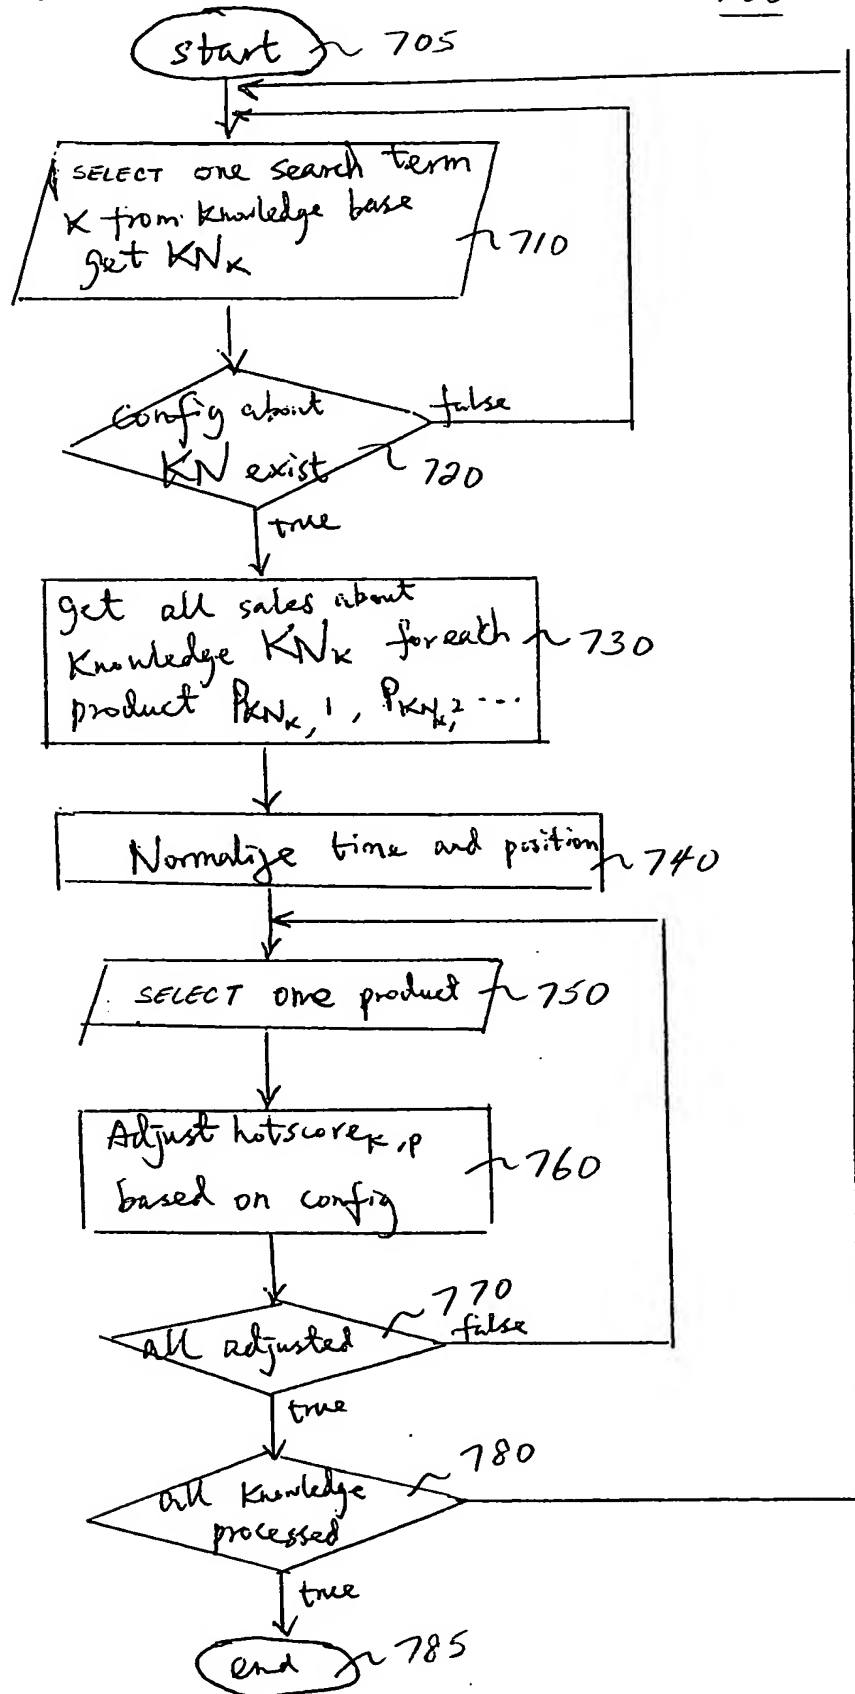 start 705
SELECT one search term
K from knowledge base
get KNK
710
Config about
KN exist
false
720
true
get all sales about
Knowledge KNK foreach
product PKNK,1, PKNK,2 ...
730
Normalize time and position
740
SELECT one product
750
Adjust hotscoreK,P
based on config
760
770
all adjusted
false
true
780
all knowledge
processed
true
end 785